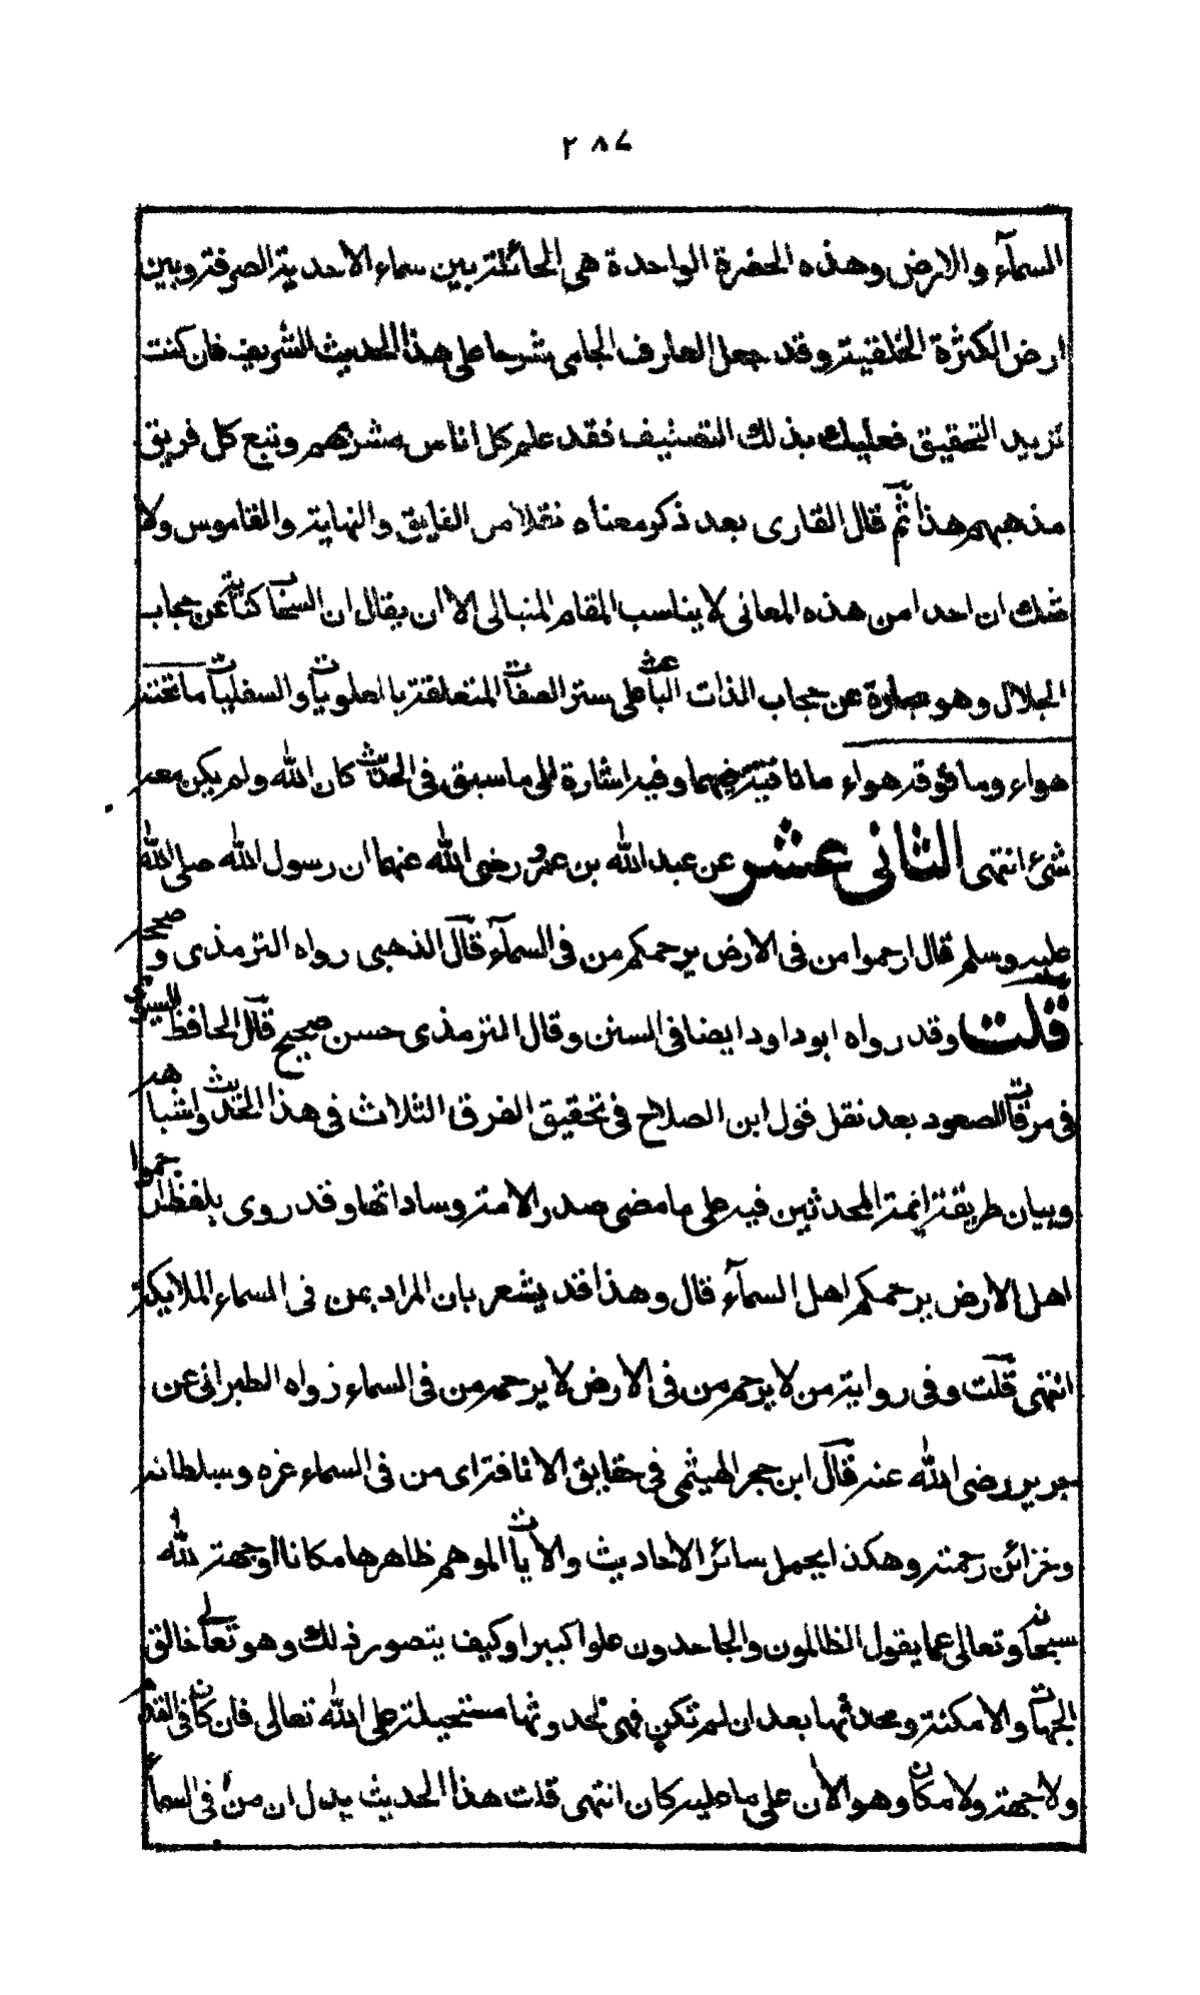 ٢٨٧
السمآء والارض وهذه الحضرة الواحدة هى الحائلة بين سماء الاحدية الصرفة وبين
ارض الكثرة الخلقية وقد جعل العارف الجامى شرحا على هذا الحديث الشريف فان كنت
تريد التحقيق فعليك بذلك التصنيف فقد علم كل اناس مشربهم وتبع كل فريق
مذهبهم هذا ثم قال القارى بعد ذكر معناه نقلا من الفايق والنهاية والقاموس ولا
شك ان احدا من هذه المعانى لا يناسب المقام المنبالى الا ان يقال ان السحاب كناية عن حجاب
الجلال وهو عبارة عن حجاب الذات الباعث على ستر الصفات المتعلقة بالعلويات والسفليات ما تحته
هواء وما فوقه هواء ما نافية فيهما وفيه اشارة الى ما سبق فى الحديث كان الله ولم يكن معه
شئ انتهى الثانى عشر عن عبد الله بن عمرو رضى الله عنهما ان رسول الله صلى الله
عليه وسلم قال ارحموا من فى الارض يرحمكم من فى السمآء قال الذهبى رواه الترمذى وصححه
قلت وقد رواه ابو داود ايضا فى السنن وقال الترمذى حسن صحيح قال الحافظ السيوطى
فى مرقات الصعود بعد نقل قول ابن الصلاح فى تحقيق الفرق الثلاث فى هذا الحديث واشباهه
وبيان طريقة ائمة المحدثين فيه على ما مضى صدر الامة وساداتها وقد روى بلفظ ارحموا
اهل الارض يرحمكم اهل السمآء قال وهذا قد يشعر بان المراد بمن فى السماء الملايكة
انتهى قلت وفى رواية من لا يرحم من فى الارض لا يرحمه من فى السماء رواه الطبرانى عن
جرير رضى الله عنه قال ابن حجر الهيثمى فى حقايق الانافة اى من فى السماء عزه وسلطانه
وخزائن رحمته وهكذا يحمل سائر الاحاديث والايات الموهم ظاهرها مكانا او جهة لله
سبحانه وتعالى عما يقول الظالمون والجاحدون علوا كبيرا وكيف يتصور ذلك وهو تعالى خالق
الجهات والامكنة ومحدثها بعد ان لم تكن فهى لحدوثها مستحيلة على الله تعالى فان كان فى القدم
ولا جهة ولا مكان وهو الآن على ما عليه كان انتهى قلت هذا الحديث يدل ان من فى السماء